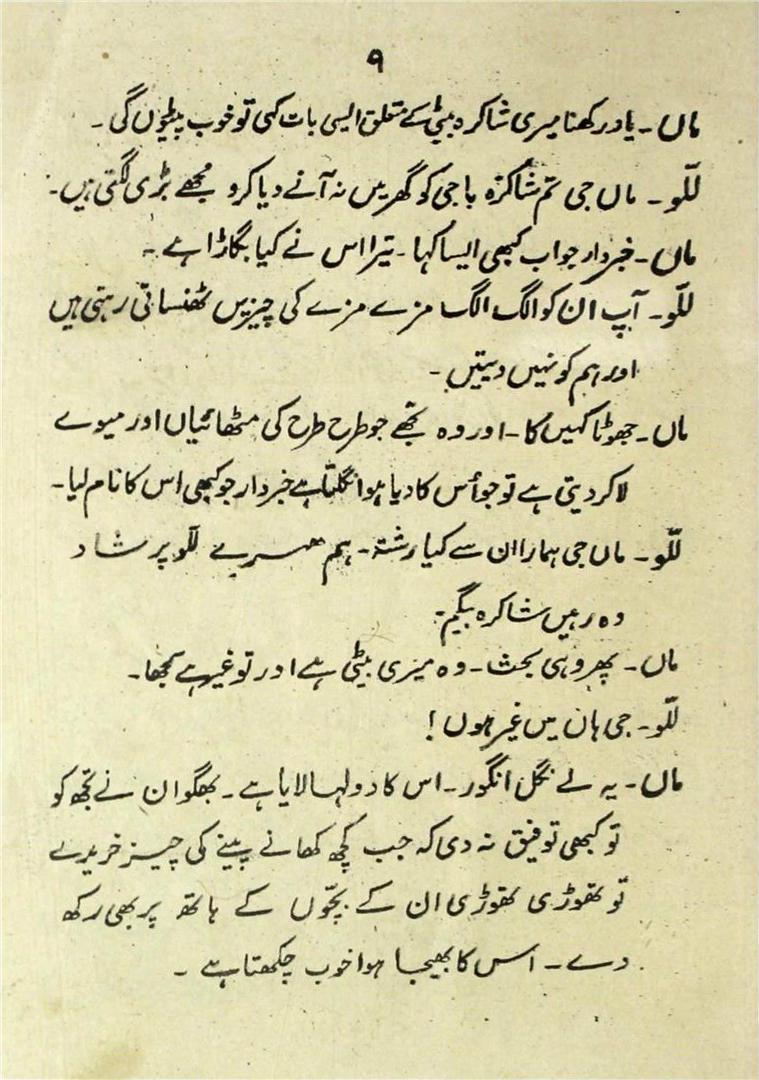 ۹
ماں۔ یاد رکھنا میری شاکرہ بیٹی کے متعلق ایسی بات کہی تو خوب پیٹوں گی۔
للّو۔ ماں جی تم شاکرہ باجی کو گھر میں نہ آنے دیا کرو مجھے بڑی لگتی ہیں۔
ماں۔ خبردار جو اب کبھی ایسا کہا۔ تیرا اس نے کیا بگاڑا ہے۔
للّو۔ آپ ان کو الگ الگ مزے مزے کی چیزیں ٹھنساتی رہتی ہیں
اور ہم کو نہیں دیتیں۔
ماں۔ جھوٹا کہیں کا۔ اور وہ تجھے جو طرح طرح کی مٹھائیاں اور میوے
لا کر دیتی ہے تو جو اُس کا دیا ہوا نگلتا ہے خبردار جو کبھی اس کا نام لیا۔
للّو۔ ماں جی ہمارا ان سے کیا رشتہ۔ ہم ٹھہرے للّو پرشاد
وہ رہیں شاکرہ بیگم۔
ماں۔ پھر وہی بحث۔ وہ میری بیٹی ہے اور تو غیر ہے سمجھا۔
للّو۔ جی ہاں میں غیر ہوں!
ماں۔ یہ لے نگل انگور۔ اس کا دولہا لایا ہے۔ بھگوان نے تجھ کو
تو کبھی توفیق نہ دی کہ جب کچھ کھانے پینے کی چیز خریدے
تو تھوڑی تھوڑی ان کے بچّوں کے ہاتھ پر بھی رکھ
دے۔ اس کا بھیجا ہوا خوب چکھتا ہے۔